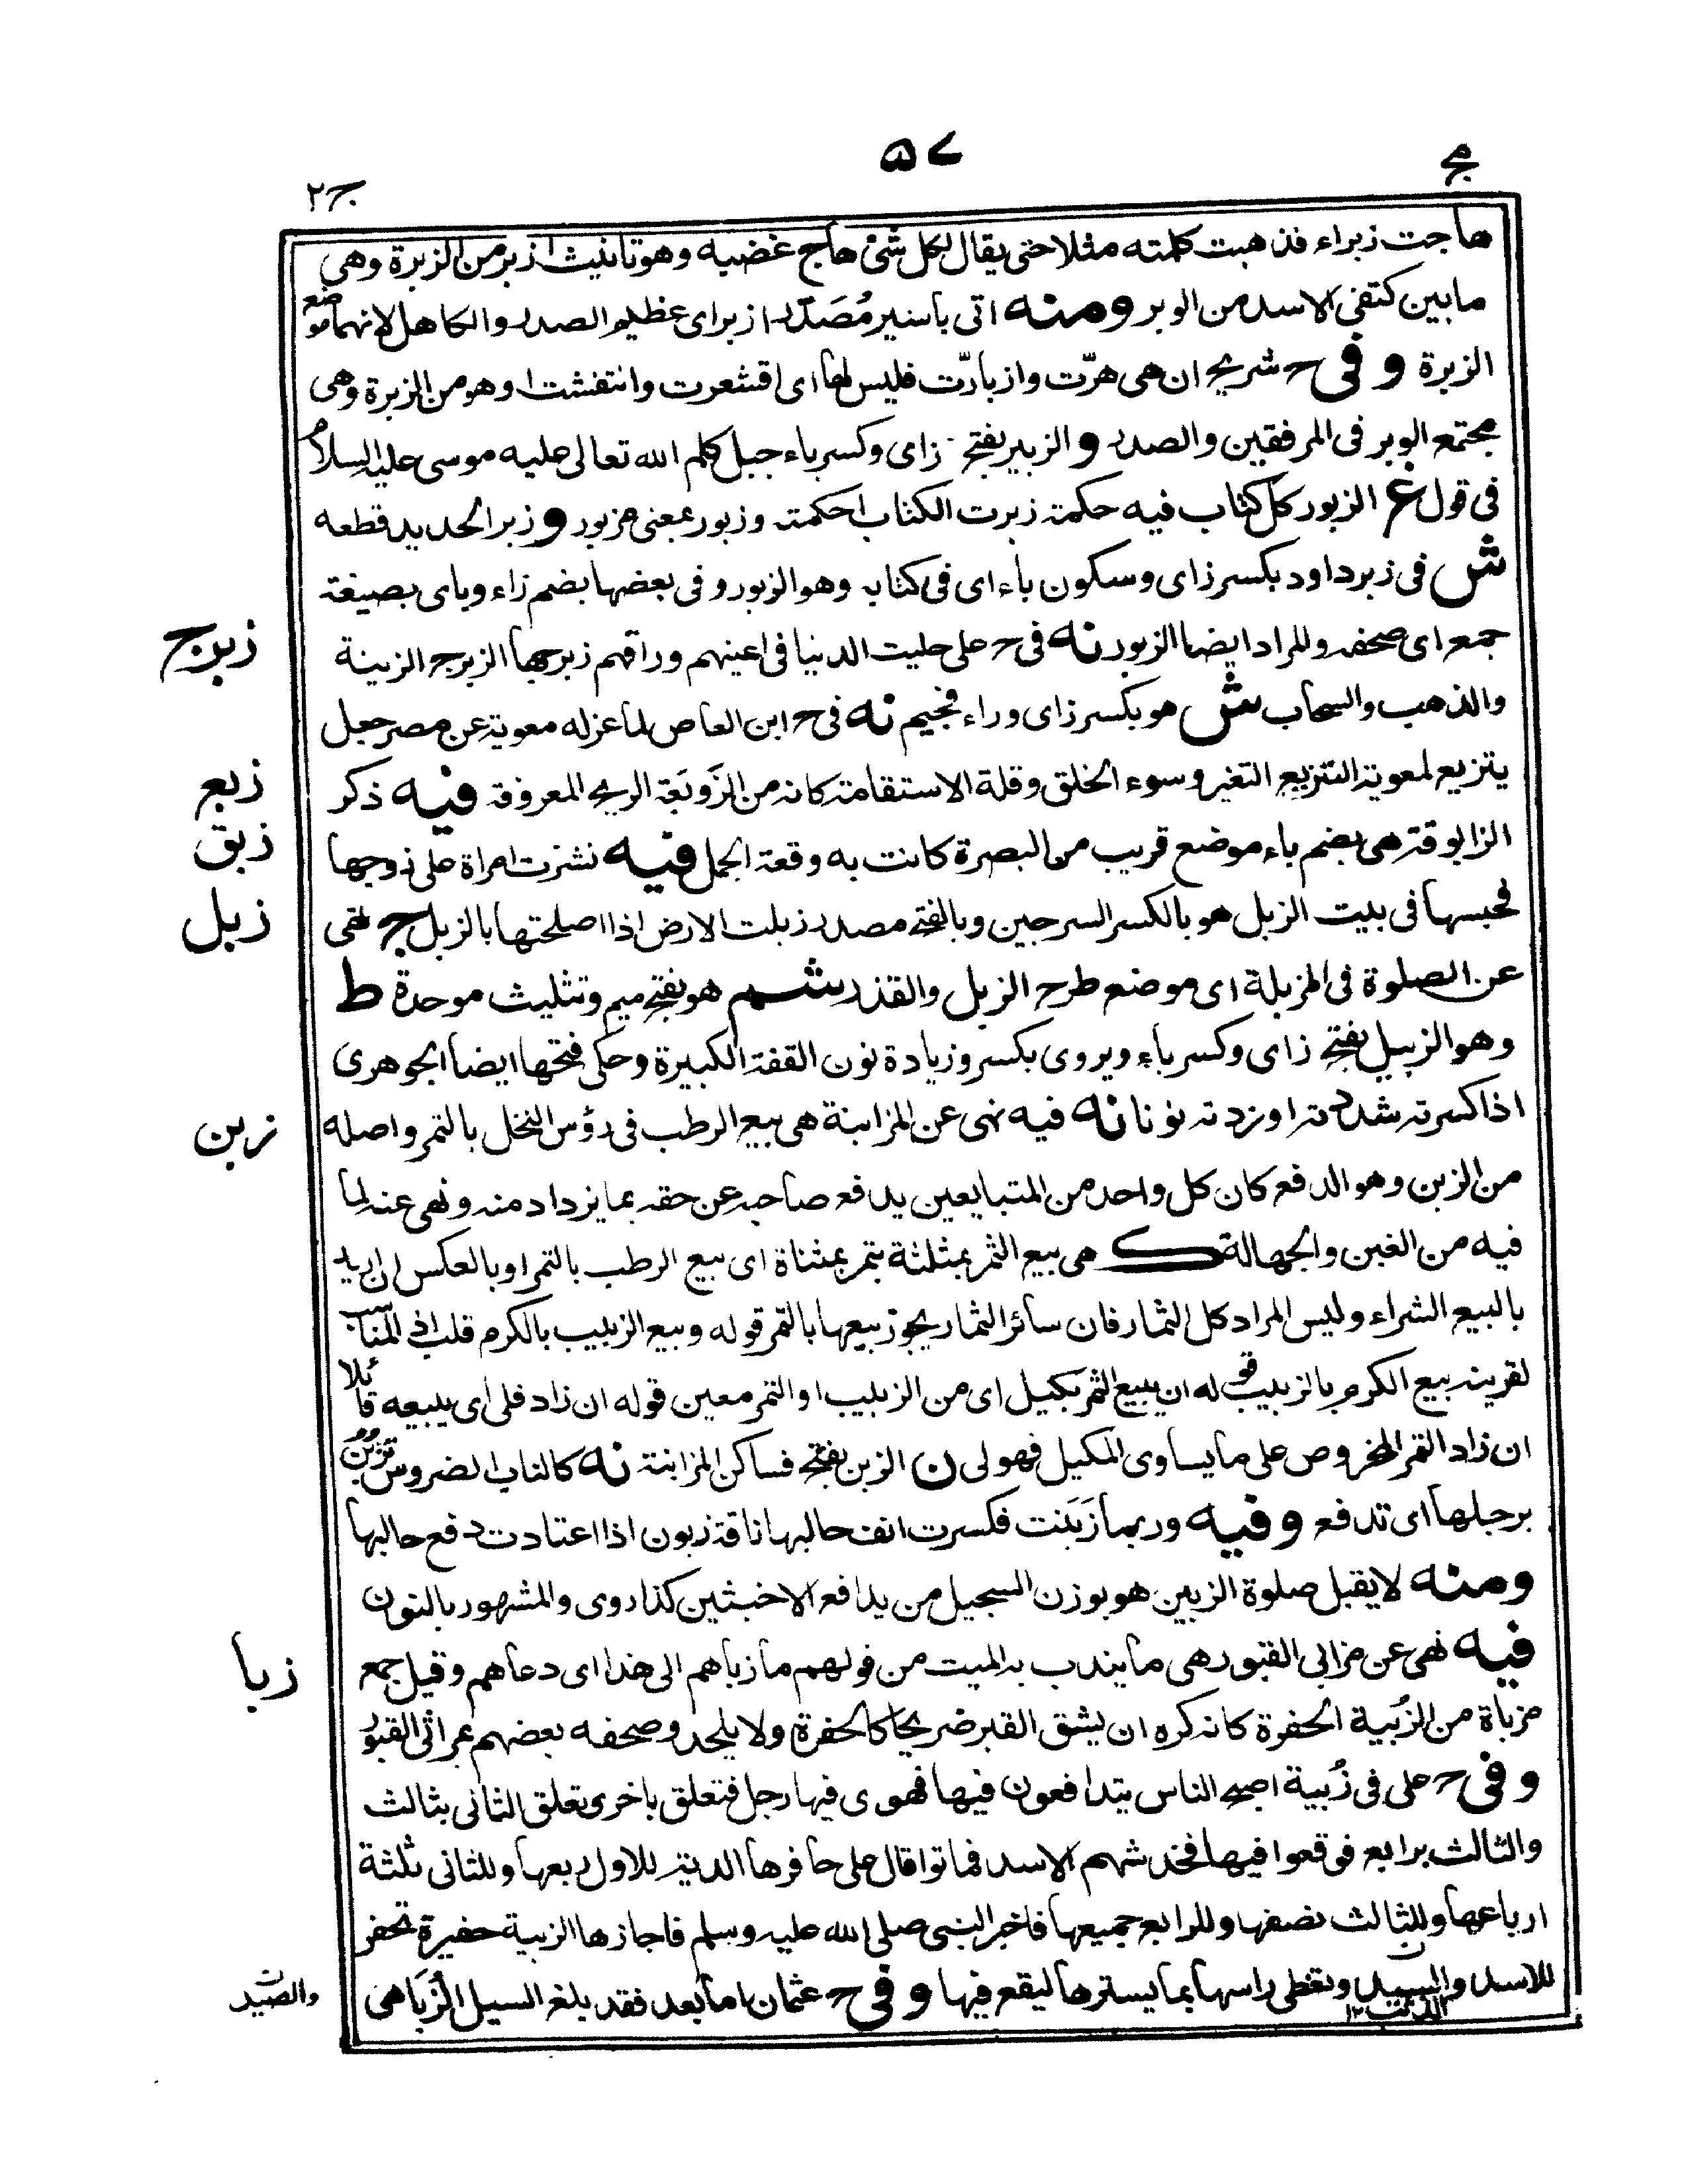 مج
٥٧
ج٢
هاجت زبراء فذهبت كلمته مثلا حتى يقال لكل شئ هاج غضبه وهو تانيث ازبر من الزبرة وهى
ما بين كتفى الاسد من الوبر ومنه اتى باسير مُصَدَّر ازبر اى عظيم الصدر والكاهل لانهما موضع
الزبرة وفى ح شريح ان هى هرّت وازبارّت فليس لها اى اقشعرت وانتفشت وهو من الزبرة وهى
مجتمع الوبر فى المرفقين والصدر و الزبير بفتح زاى وكسر باء جبل كلم الله تعالى عليه موسى عليه السلام
فى قول غ الزبور كل كتاب فيه حكمة زبرت الكتاب احكمته وزبور بمعنى مزبور و زبر الحديد قطعه
ش فى زبر داود بكسر زاى وسكون باء اى فى كتابه وهو الزبور وفى بعضها بضم زاء وباى بصيغة
جمع اى صحفه والمراد ايضا الزبور نه فى ح على حليت الدنيا فى اعينهم وراقهم زبرجها الزبرج الزينة
زبرج
والذهب والسحاب ش هو بكسر زاى وراء فجيم نه فى ح ابن العاص لما عزله معوية عن مصر جعل
يتزبع لمعوية التزبع التغير وسوء الخلق وقلة الاستقامة كانه من الزَوبَعة الريح المعروفة فيه ذكر
زبع
الزابوقة هى بضم باء موضع قريب من البصرة كانت به وقعة الجمل فيه نشزت امراة على زوجها
زبق
فحبسها فى بيت الزبل هو بالكسر السرجين وبالفتح مصدر زبلت الارض اذا اصلحتها بالزبل ج نهى
زبل
عن الصلوة فى المزبلة اى موضع طرح الزبل والقذر شم هو بفتح ميم وتثليث موحدة ط
وهو الزبيل بفتح زاى وكسر باء ويروى بكسر وزيادة نون القفة الكبيرة وحكى فتحها ايضا الجوهرى
اذا كسرته شددته او زدته نونا نه فيه نهى عن المزابنة هى بيع الرطب فى رؤس النخل بالتمر واصله
زبن
من الزبن وهو الدفع كان كل واحد من المتبايعين يدفع صاحبه عن حقه بما يزداد منه ونهى عنه لما
فيه من الغبن والجهالة ك هى بيع الثمر بمثلثة بتمر بمثناة اى بيع الرطب بالتمر او بالعكس ان اريد
بالبيع الشراء وليس المراد كل الثمار فان سائر الثمار يجوز بيعها بالتمر قوله وبيع الزبيب بالكرم قلب اذ المناسب
لقرينه بيع الكرم بالزبيب قوله ان يبيع الثمر بكيل اى من الزبيب او التمر معين قوله ان زاد فلى اى يبيعه قائلا
ان زاد التمر المخروص على ما يساوى المكيل فهو لى ن الزبن بفتح فساكن المزابنة نه كالناب الضروس تَزْبُنُ
برجلها اى تدفع وفيه وربما زَبَنت فكسرت انف حالبها ناقة زبون اذا اعتادت دفع حالبها
ومنه لا يقبل صلوة الزبين هو بوزن السجيل من يدافع الاخبثين كذا روى والمشهور بالنون
فيه نهى عن مزابى القبور هى ما يندب به الميت من قولهم ما زباهم الى هذا اى دعاهم وقيل جمع
زبا
مزباة من الزُبية الحفرة كانه كره ان يشق القبر ضريحا كالحفرة ولا يلحد وصحفه بعضهم بمراثى القبور
وفى ح على فى زُبية اصبح الناس يتدافعون فيها فهوى فيها رجل فتعلق باخر وتعلق الثانى بثالث
والثالث برابع فوقعوا فيها فخدشهم الاسد فماتوا فقال على حافرها الدية للاول ربعها وللثانى ثلثة
ارباعها وللثالث نصفها وللرابع جميعها فاخبر النبى صلى الله عليه وسلم فاجازها الزبية حفيرة تحفر
للاسد والسيد وتغطى راسها بما يسترها ليقع فيها وفى ح عثمان اما بعد فقد بلغ السيل الزُبَا هى
والصيد ن